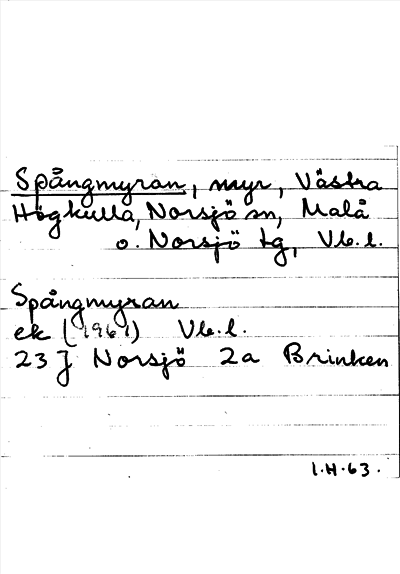 Spångmyran, myr, Västra
Högkulla, Norsjö sn, Malå
o. Norsjö tg, Vb.l.
Spångmyran
ek (1961) Vb.l.
23J Norsjö 2a Brinken
I.H.63.